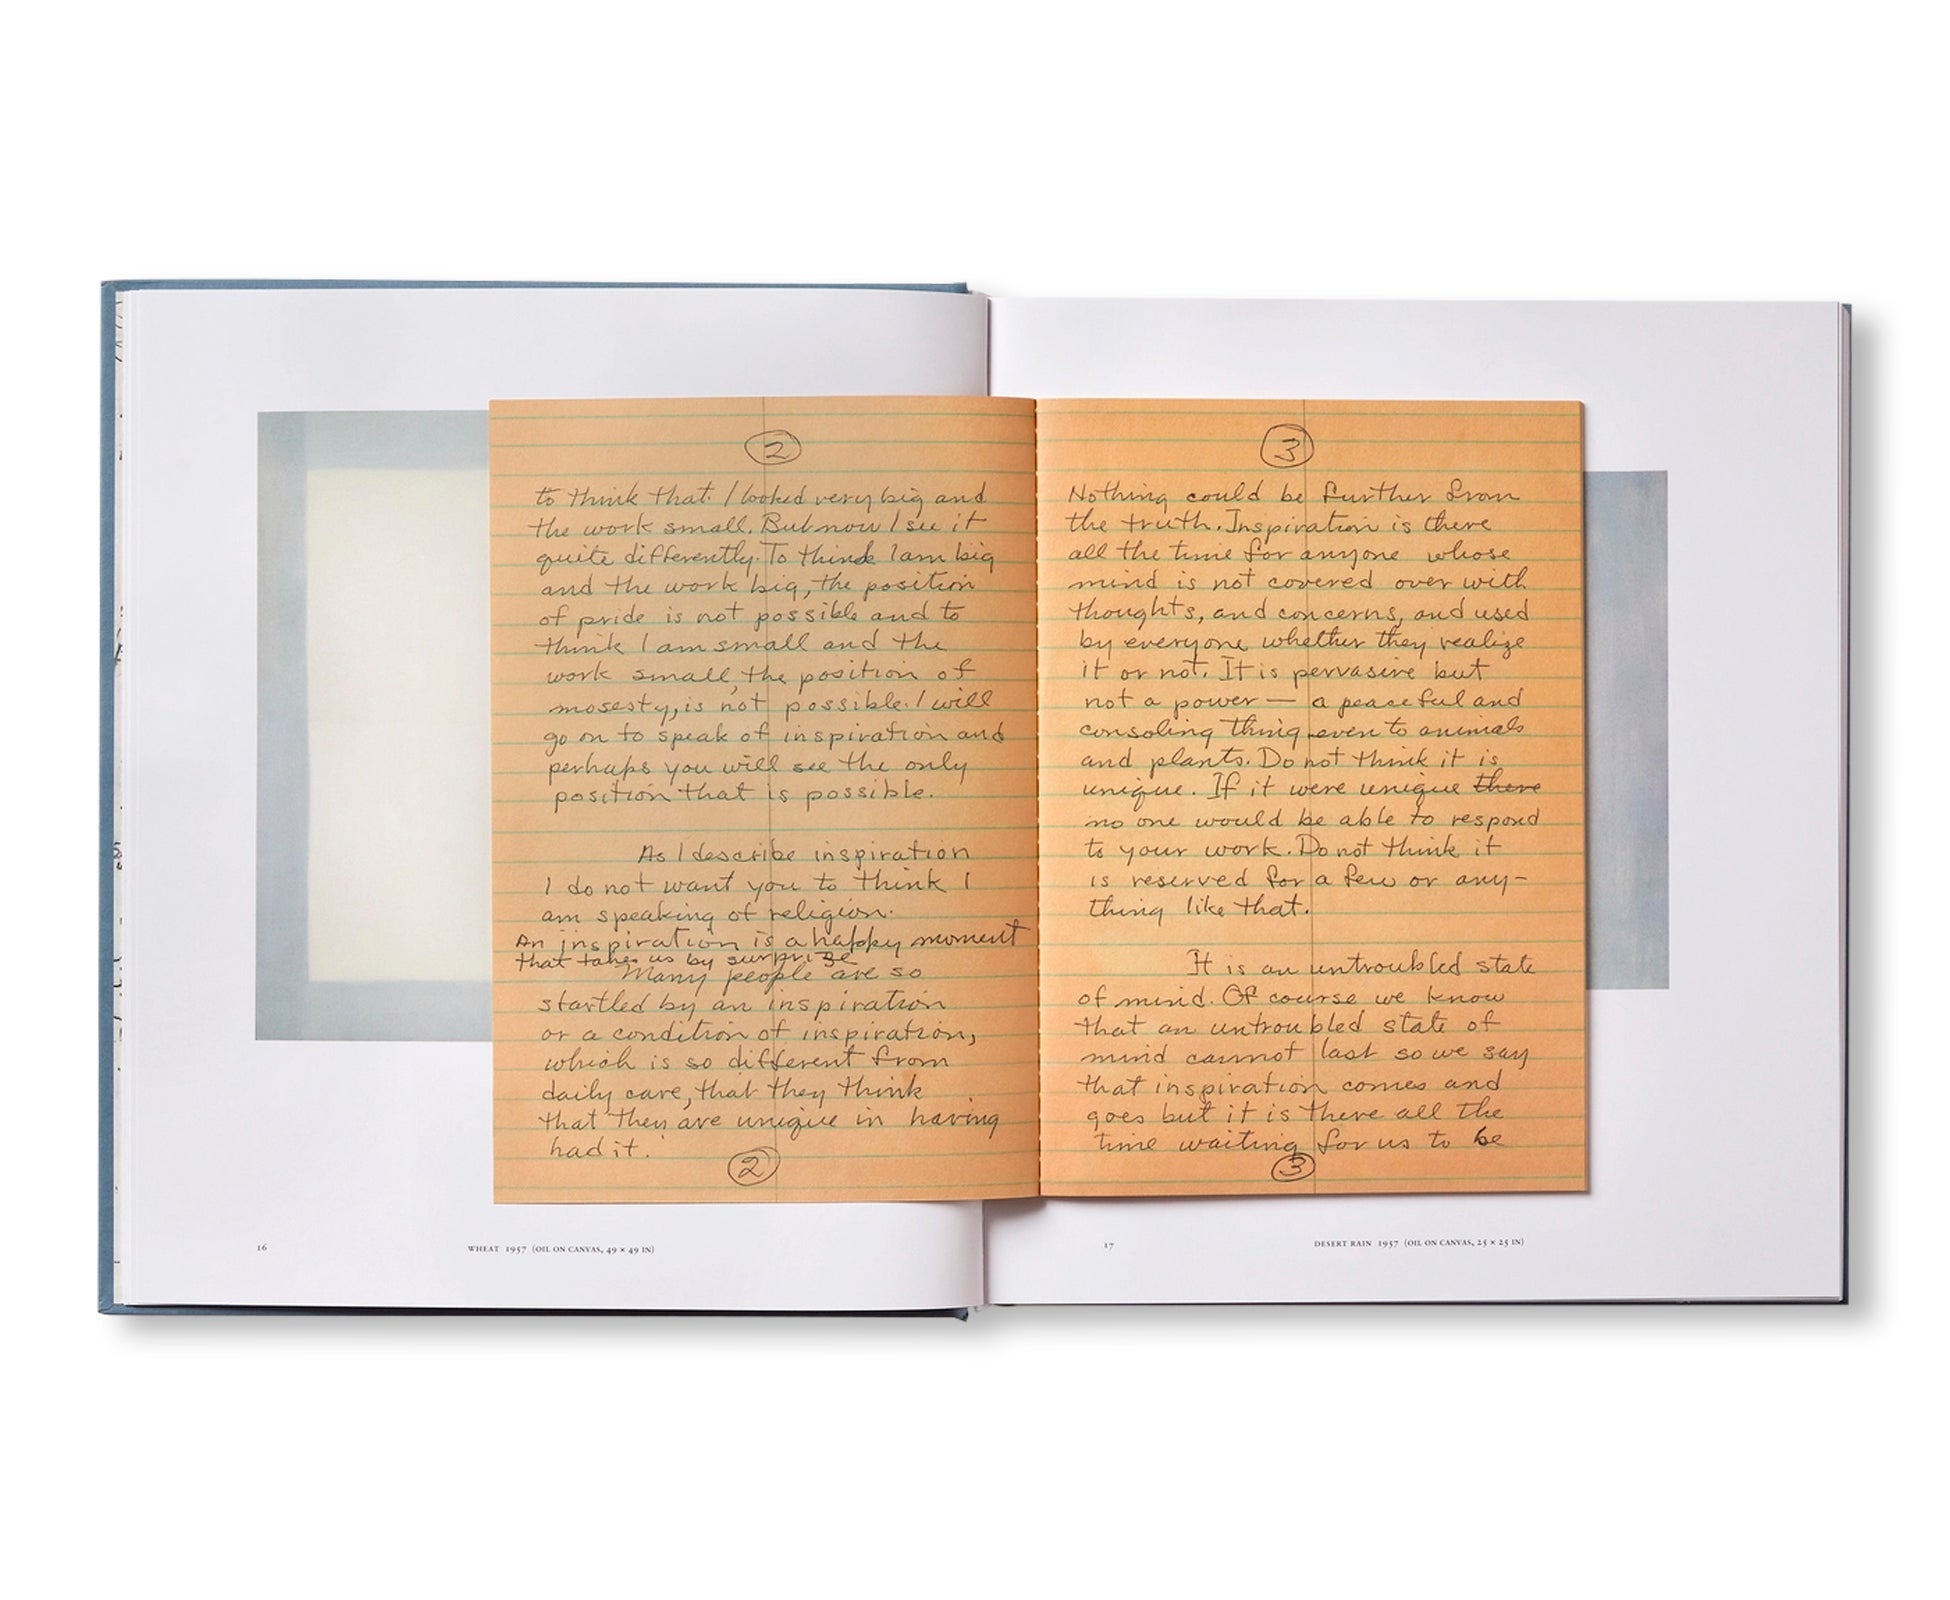 2
to think that. I looked very big and
the work small. But now I see it
quite differently. To think I am big
and the work big, the position
of pride is not possible and to
think I am small and the
work small, the position of
mosesty, is not possible. I will
go on to speak of inspiration and
perhaps you will see the only
position that is possible.
As I describe inspiration
I do not want you to think I
am speaking of religion.
An inspiration is a happy moment
that takes us by surprise
Many people are so
startled by an inspiration
or a condition of inspiration,
which is so different from
daily care, that they think
that they are unique in having
had it.
2
3
Nothing could be further from
the truth. Inspiration is there
all the time for anyone whose
mind is not covered over with
thoughts, and concerns, and used
by everyone whether they realize
it or not. It is pervasive but
not a power — a peaceful and
consoling thing even to animals
and plants. Do not think it is
unique. If it were unique there
no one would be able to respond
to your work. Do not think it
is reserved for a few or any-
thing like that.
It is an untroubled state
of mind. Of course we know
that an untroubled state of
mind cannot last so we say
that inspiration comes and
goes but it is there all the
time waiting for us to be
3
16
WHEAT 1957 (OIL ON CANVAS, 49 × 49 IN)
17
DESERT RAIN 1957 (OIL ON CANVAS, 25 × 25 IN)